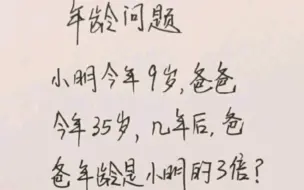 年龄问题
小明今年9岁,爸爸
今年35岁,几年后,爸
爸年龄是小明的3倍?